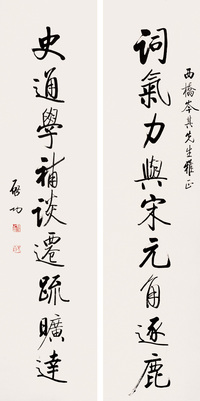 西橋岑其先生雅正
詞氣力與宋元角逐鹿
史通學補談遷疏曠達
啟功